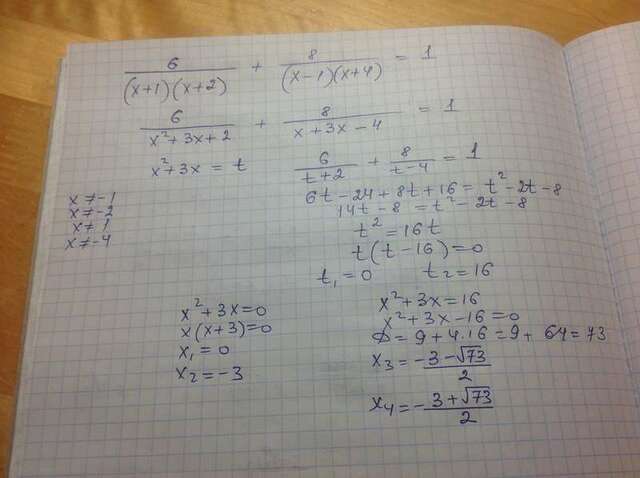 6/((x+1)(x+2)) + 8/((x-1)(x+4)) = 1
6/(x²+3x+2) + 8/(x+3x-4) = 1
x²+3x = t
6/(t+2) + 8/(t-4) = 1
6t-24+8t+16 = t²-2t-8
14t-8 = t²-2t-8
t² = 16t
t(t-16) = 0
t₁ = 0 t₂ = 16
x ≠ -1
x ≠ -2
x ≠ 1
x ≠ -4
x²+3x = 0
x(x+3) = 0
x₁ = 0
x₂ = -3
x²+3x = 16
x²+3x-16 = 0
D = 9+4·16 = 9+64 = 73
x₃ = -3-√73/2
x₄ = -3+√73/2